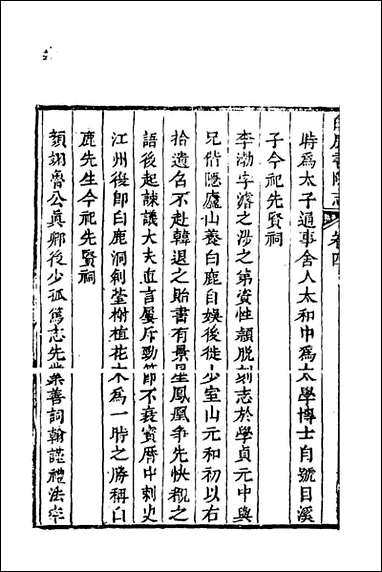 白鹿書院志 卷四
時為太子通事舍人太和中為太學博士自號白溪
子今祀先賢祠
李渤字濬之涉之第資性穎脫刻志於學貞元中與
兄偕隱廬山養白鹿自娛後徙少室山元和初以右
拾遺召不赴韓退之貽書有景星鳳凰爭先快覩之
語後起諫議大夫直言屢斥勁節不衰寶曆中刺史
江州復即白鹿洞創䑓榭植花木為一時之勝稱白
鹿先生今祀先賢祠
顏詡魯公真卿後少孤篤志先業善詞翰謹禮法宰